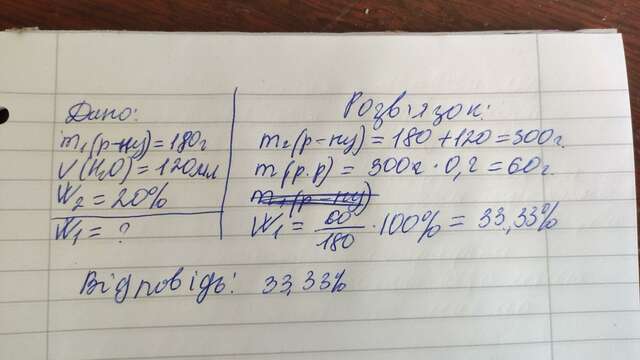 Дано:
m₁(р-ну)=180г
V(H₂O)=120мл
W₂=20%
W₁=?
Розв'язок:
m₂(р-ну)=180+120=300г.
m(р.р)=300г·0,2=60г.
W₁=60/180·100%=33,33%
Відповідь: 33,33%